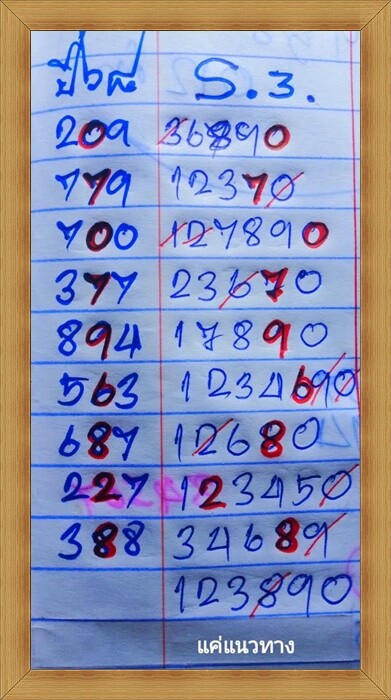 ปี69 S.3.
209 36890
779 12370
700 127890
377 23670
894 17890
563 1234690
687 12680
227 123450
388 34689
123890
แค่แนวทาง